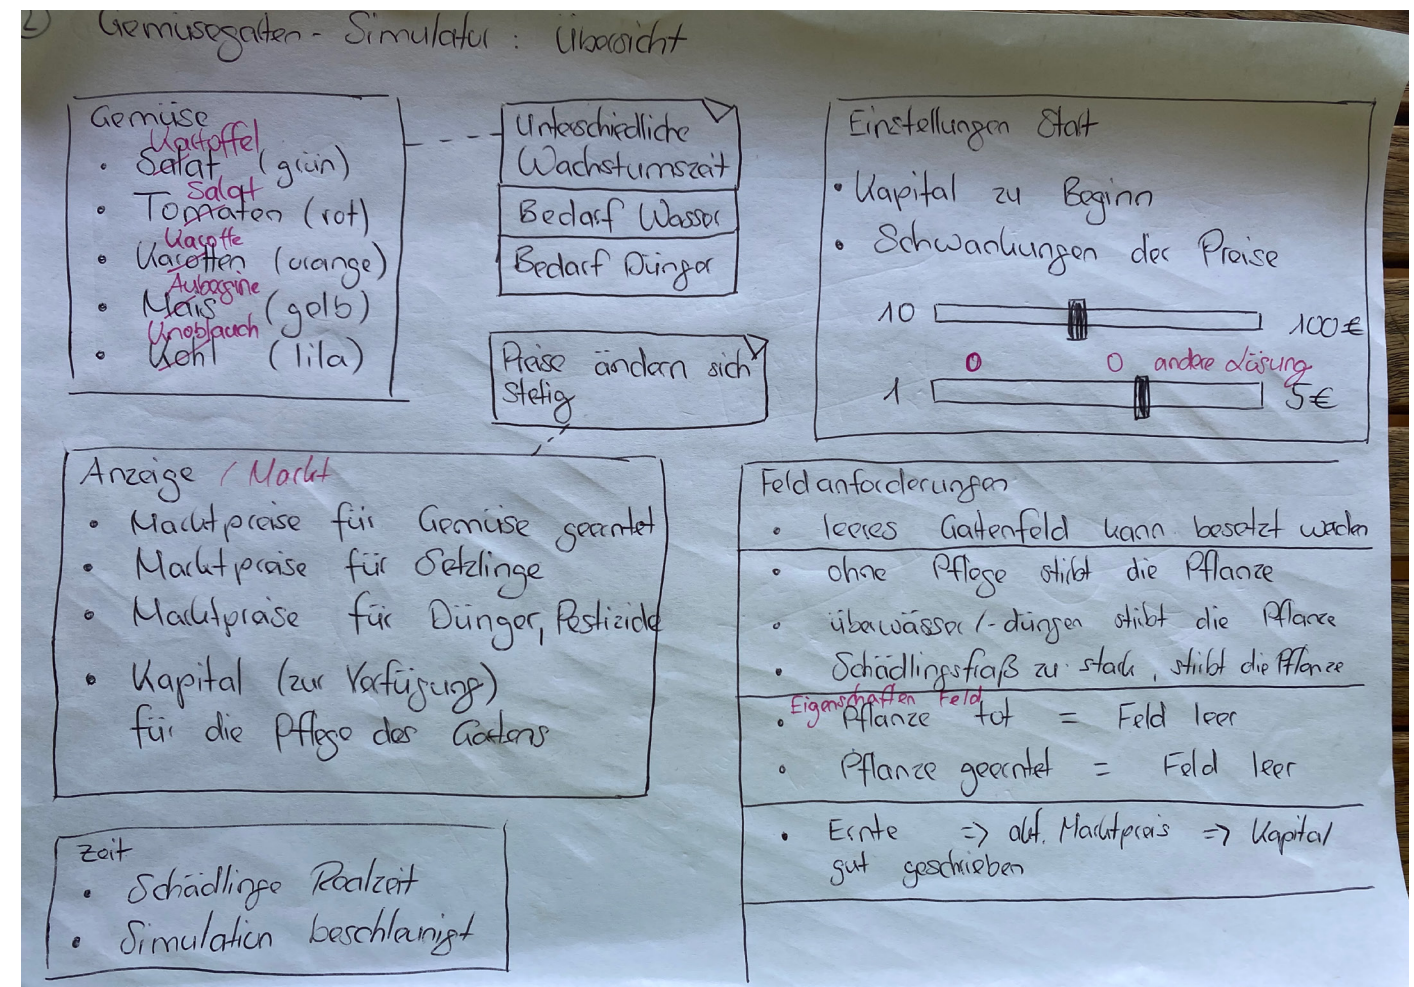 2) Gemüsegarten - Simulator : Übersicht
Gemüse
Kartoffel
• Salat (grün)
Salat
• Tomaten (rot)
Karotte
• Karotten (orange)
Aubergine
• Mais (gelb)
Knoblauch
• Kohl (lila)
Unterschiedliche
Wachstumszeit
Bedarf Wasser
Bedarf Dünger
Preise ändern sich
stetig
Einstellungen Start
• Kapital zu Beginn
• Schwankungen der Preise
10 100€
0 0 andere Lösung
1 5€
Anzeige / Markt
• Marktpreise für Gemüse geerntet
• Marktpreise für Setzlinge
• Marktpreise für Dünger, Pestizide
• Kapital (zur Verfügung)
für die Pflege des Gartens
Feldanforderungen
• leeres Gartenfeld kann besetzt werden
• ohne Pflege stirbt die Pflanze
• überwässer/-düngen stirbt die Pflanze
• Schädlingsfraß zu stark, stirbt die Pflanze
Eigenschaften Feld
• Pflanze tot = Feld leer
• Pflanze geerntet = Feld leer
• Ernte => akt. Marktpreis => Kapital
gut geschrieben
Zeit
• Schädlinge Realzeit
• Simulation beschleunigt